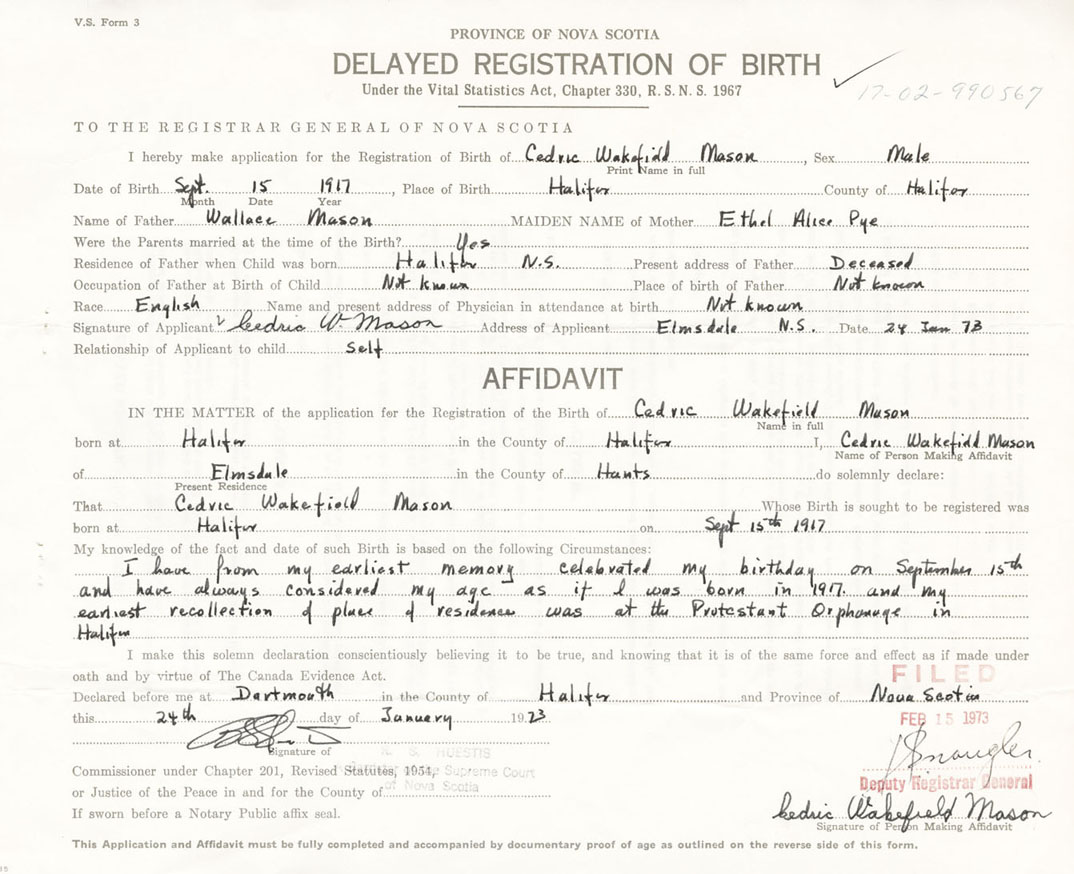 V.S. Form 3
PROVINCE OF NOVA SCOTIA
DELAYED REGISTRATION OF BIRTH
Under the Vital Statistics Act, Chapter 330, R.S.N.S. 1967
17-02-990567
TO THE REGISTRAR GENERAL OF NOVA SCOTIA
I hereby make application for the Registration of Birth of Cedric Wakefield Mason, Sex Male
Print Name in full
Date of Birth Sept. 15 1917, Place of Birth Halifax County of Halifax
Month Date Year
Name of Father Wallace Mason MAIDEN NAME of Mother Ethel Alice Pye
Were the Parents married at the time of the Birth? Yes
Residence of Father when Child was born Halifax N.S. Present address of Father Deceased
Occupation of Father at Birth of Child Not known Place of birth of Father Not known
Race English Name and present address of Physician in attendance at birth Not known
Signature of Applicant Cedric W. Mason Address of Applicant Elmsdale N.S. Date 24 Jan 73
Relationship of Applicant to child Self
AFFIDAVIT
IN THE MATTER of the application for the Registration of the Birth of Cedric Wakefield Mason
Name in full
born at Halifax in the County of Halifax I, Cedric Wakefield Mason
Name of Person Making Affidavit
of Elmsdale in the County of Hants do solemnly declare:
Present Residence
That Cedric Wakefield Mason Whose Birth is sought to be registered was
born at Halifax on Sept 15th 1917
My knowledge of the fact and date of such Birth is based on the following Circumstances:
I have from my earliest memory celebrated my birthday on September 15th
and have always considered my age as if I was born in 1917. and my
earliest recollection of place of residence was at the Protestant Orphanage in
Halifax
I make this solemn declaration conscientiously believing it to be true, and knowing that it is of the same force and effect as if made under
oath and by virtue of The Canada Evidence Act.
FILED
Declared before me at Dartmouth in the County of Halifax and Province of Nova Scotia
this 24th day of January 1973
FEB 15 1973
Signature of
R. S. HUESTIS
Commissioner under Chapter 201, Revised Statutes, 1954,
the Supreme Court
of Nova Scotia
or Justice of the Peace in and for the County of
Deputy Registrar General
If sworn before a Notary Public affix seal.
Cedric Wakefield Mason
Signature of Person Making Affidavit
This Application and Affidavit must be fully completed and accompanied by documentary proof of age as outlined on the reverse side of this form.